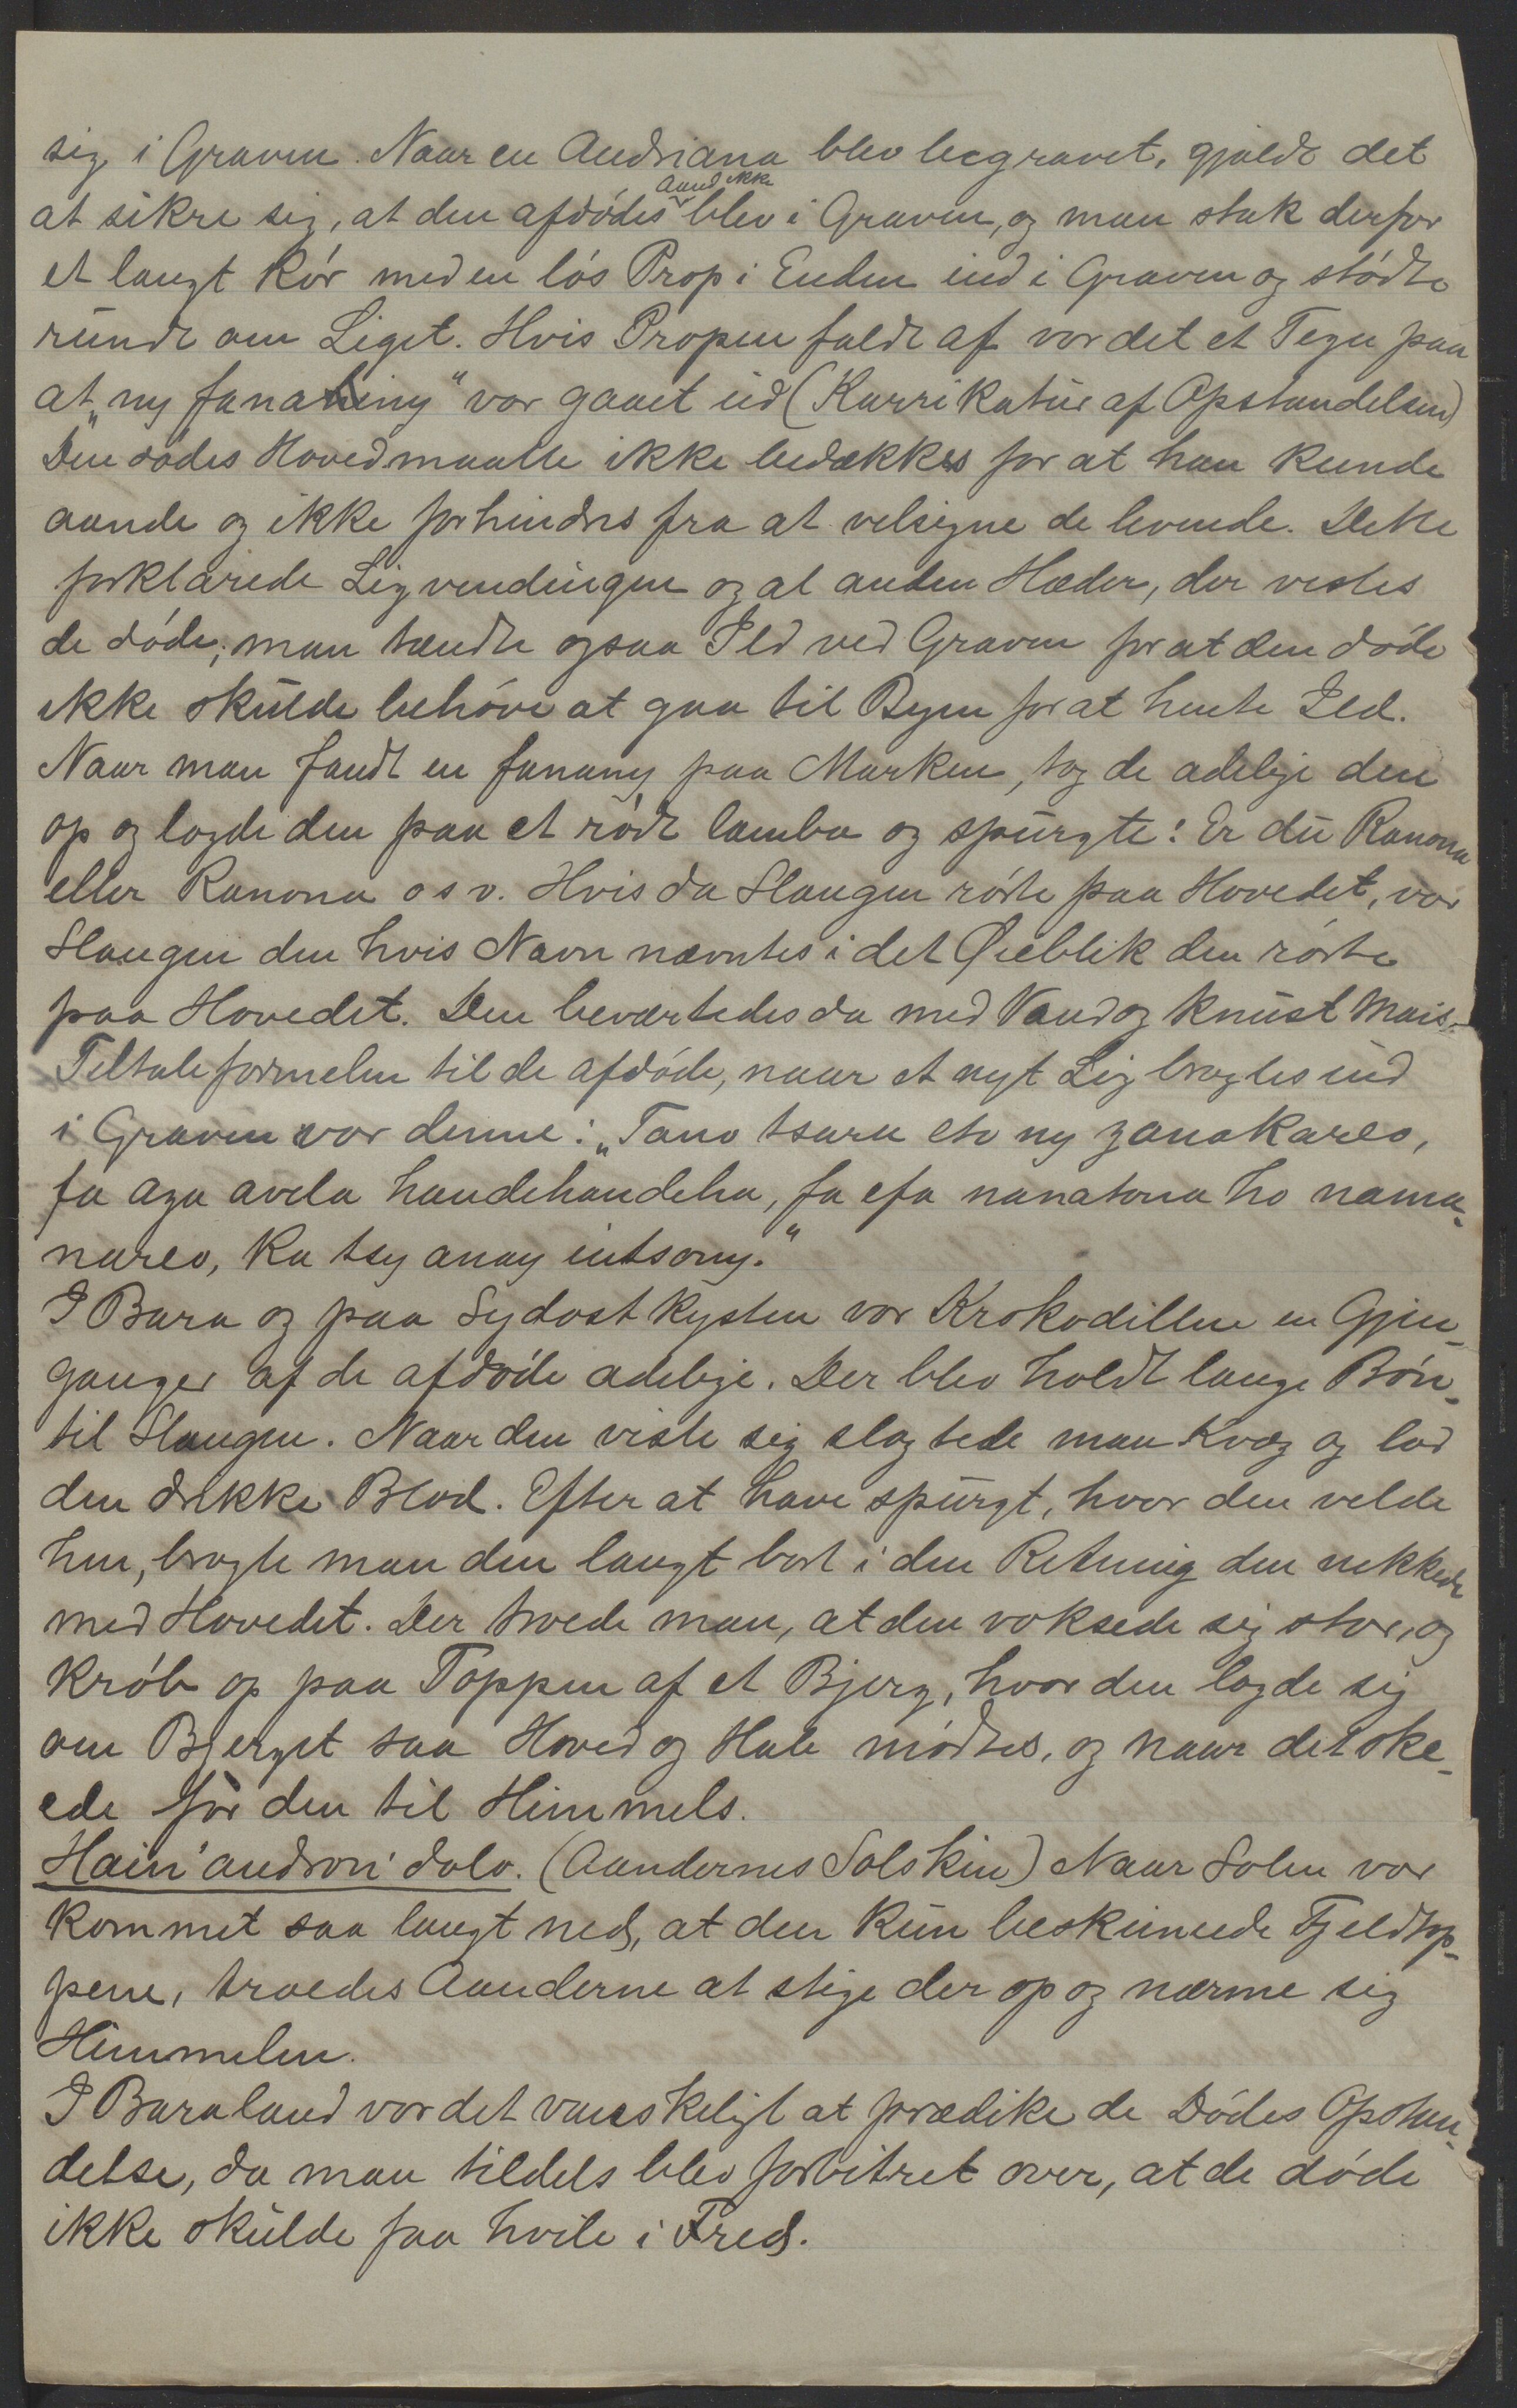 sig i Graven. Naar en Andriana blev begravet, gjaldt det
at sikre sig, at den afdødes Aand ikke blev i Graven, og man stak derfor
et langt Rør med en løs Prop i Enden ind i Graven og stødte
rundt om Liget. Hvis Propen faldt af var det et Tegn paa
at „ny fanahiny“ var gaaet ud (Karrikatur af Opstandelsen)
Den dødes Hoved maatte ikke bedækkes for at han kunde
aande og ikke forhindres fra at velsigne de levende. Dette
forklarede Ligvendingen og al anden Hæder, der vistes
de døde; man tændte ogsaa Ild ved Graven for at den døde
ikke skulde behøve at gaa til Byen for at hente Ild.
Naar man fandt en fanany paa Marken, tog de adelige den
op og lagde den paa et rødt lamba og spurgte: Er du Ranona
eller Ranona o s v. Hvis da Slangen rørte paa Hovedet, var
Slangen den hvis Navn nævntes i det Øieblik den rørte
paa Hovedet. Den beværtedes da med Vand og knust Mais.
Tiltaleformelen til de afdøde, naar et nyt Lig bragtes ind
i Graven var denne: „Tano tsara eto ny zanakareo,
fa aza avela handehandeha, fa efa nanatona ho nama-
nareo, ka tsy anay intsony.“
I Bara og paa Sydostkysten var Krokodillen en Gjen-
ganger af de afdøde adelige. Der blev holdt lange Bøn-
til Slangen. Naar den viste sig slagtede man Kvæg og lod
den drikke Blod. Efter at have spurgt, hvor den vilde
hen, bragte man den langt bort i den Retning den nikkede
med Hovedet. Der troede man, at den voksede sig stor, og
krøb op paa Toppen af et Bjerg, hvor den lagde sig
om Bjerget saa Hoved og Hale mødtes, og naar det ske-
ede før den til Himmels.
Hain'andron'dolo. (Aandernes Solskin) Naar Solen var
kommet saa langt ned, at den kun beskinnede Fjeldtop-
pene, troedes Aanderne at stige der op og nærme sig
Himmelen.
I Baraland var det vanskeligt at prædike de Dødes Opstan-
delse, da man tildels blev forbitret over, at de døde
ikke skulde faa hvile i Fred.